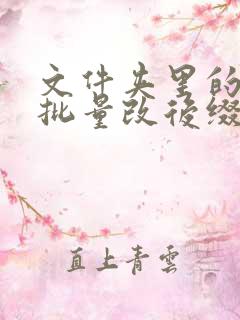 文件夹里的
批量改後缀
直上青雲